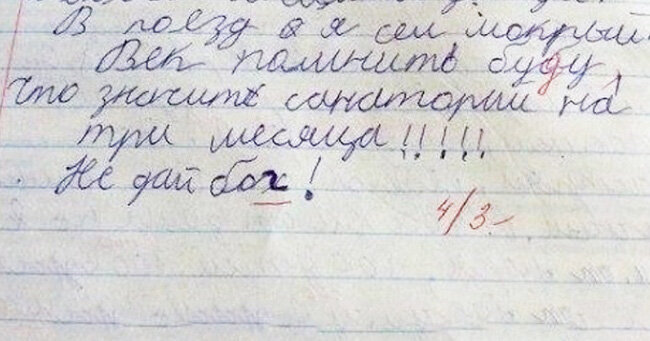 В поезд я сел мокрый
Век помнить буду,
что значит санаторий на
три месяца!!!!!
Не дай бох!
4/3-